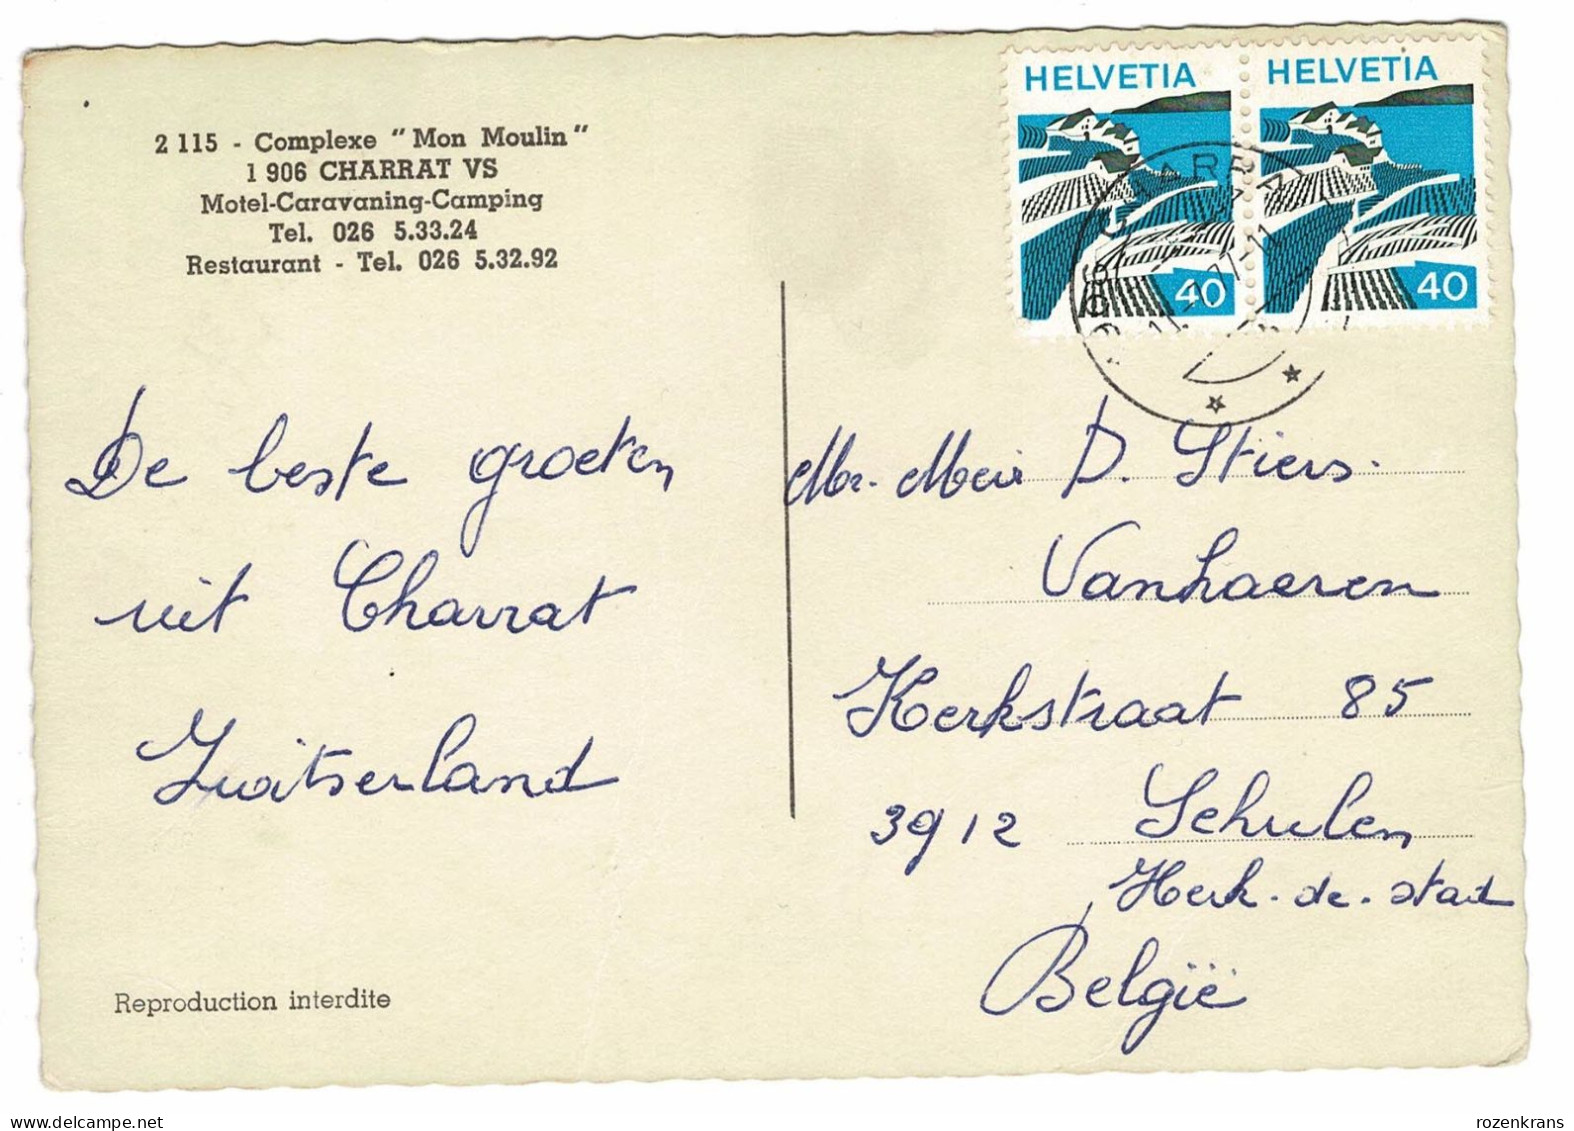 2 115 - Complexe "Mon Moulin"
1 906 CHARRAT VS
Motel-Caravaning-Camping
Tel. 026 5.33.24
Restaurant - Tel. 026 5.32.92
HELVETIA
40
HELVETIA
40
1906 CHARRA
De beste groeten
uit Charrat
Zwitserland
Mr. Mevr D. Stiers.
Vanhaeren
Kerkstraat 85
3912 Schulen
Herk-de-stad
België
Reproduction interdite
delcampe.net
rozenkrans